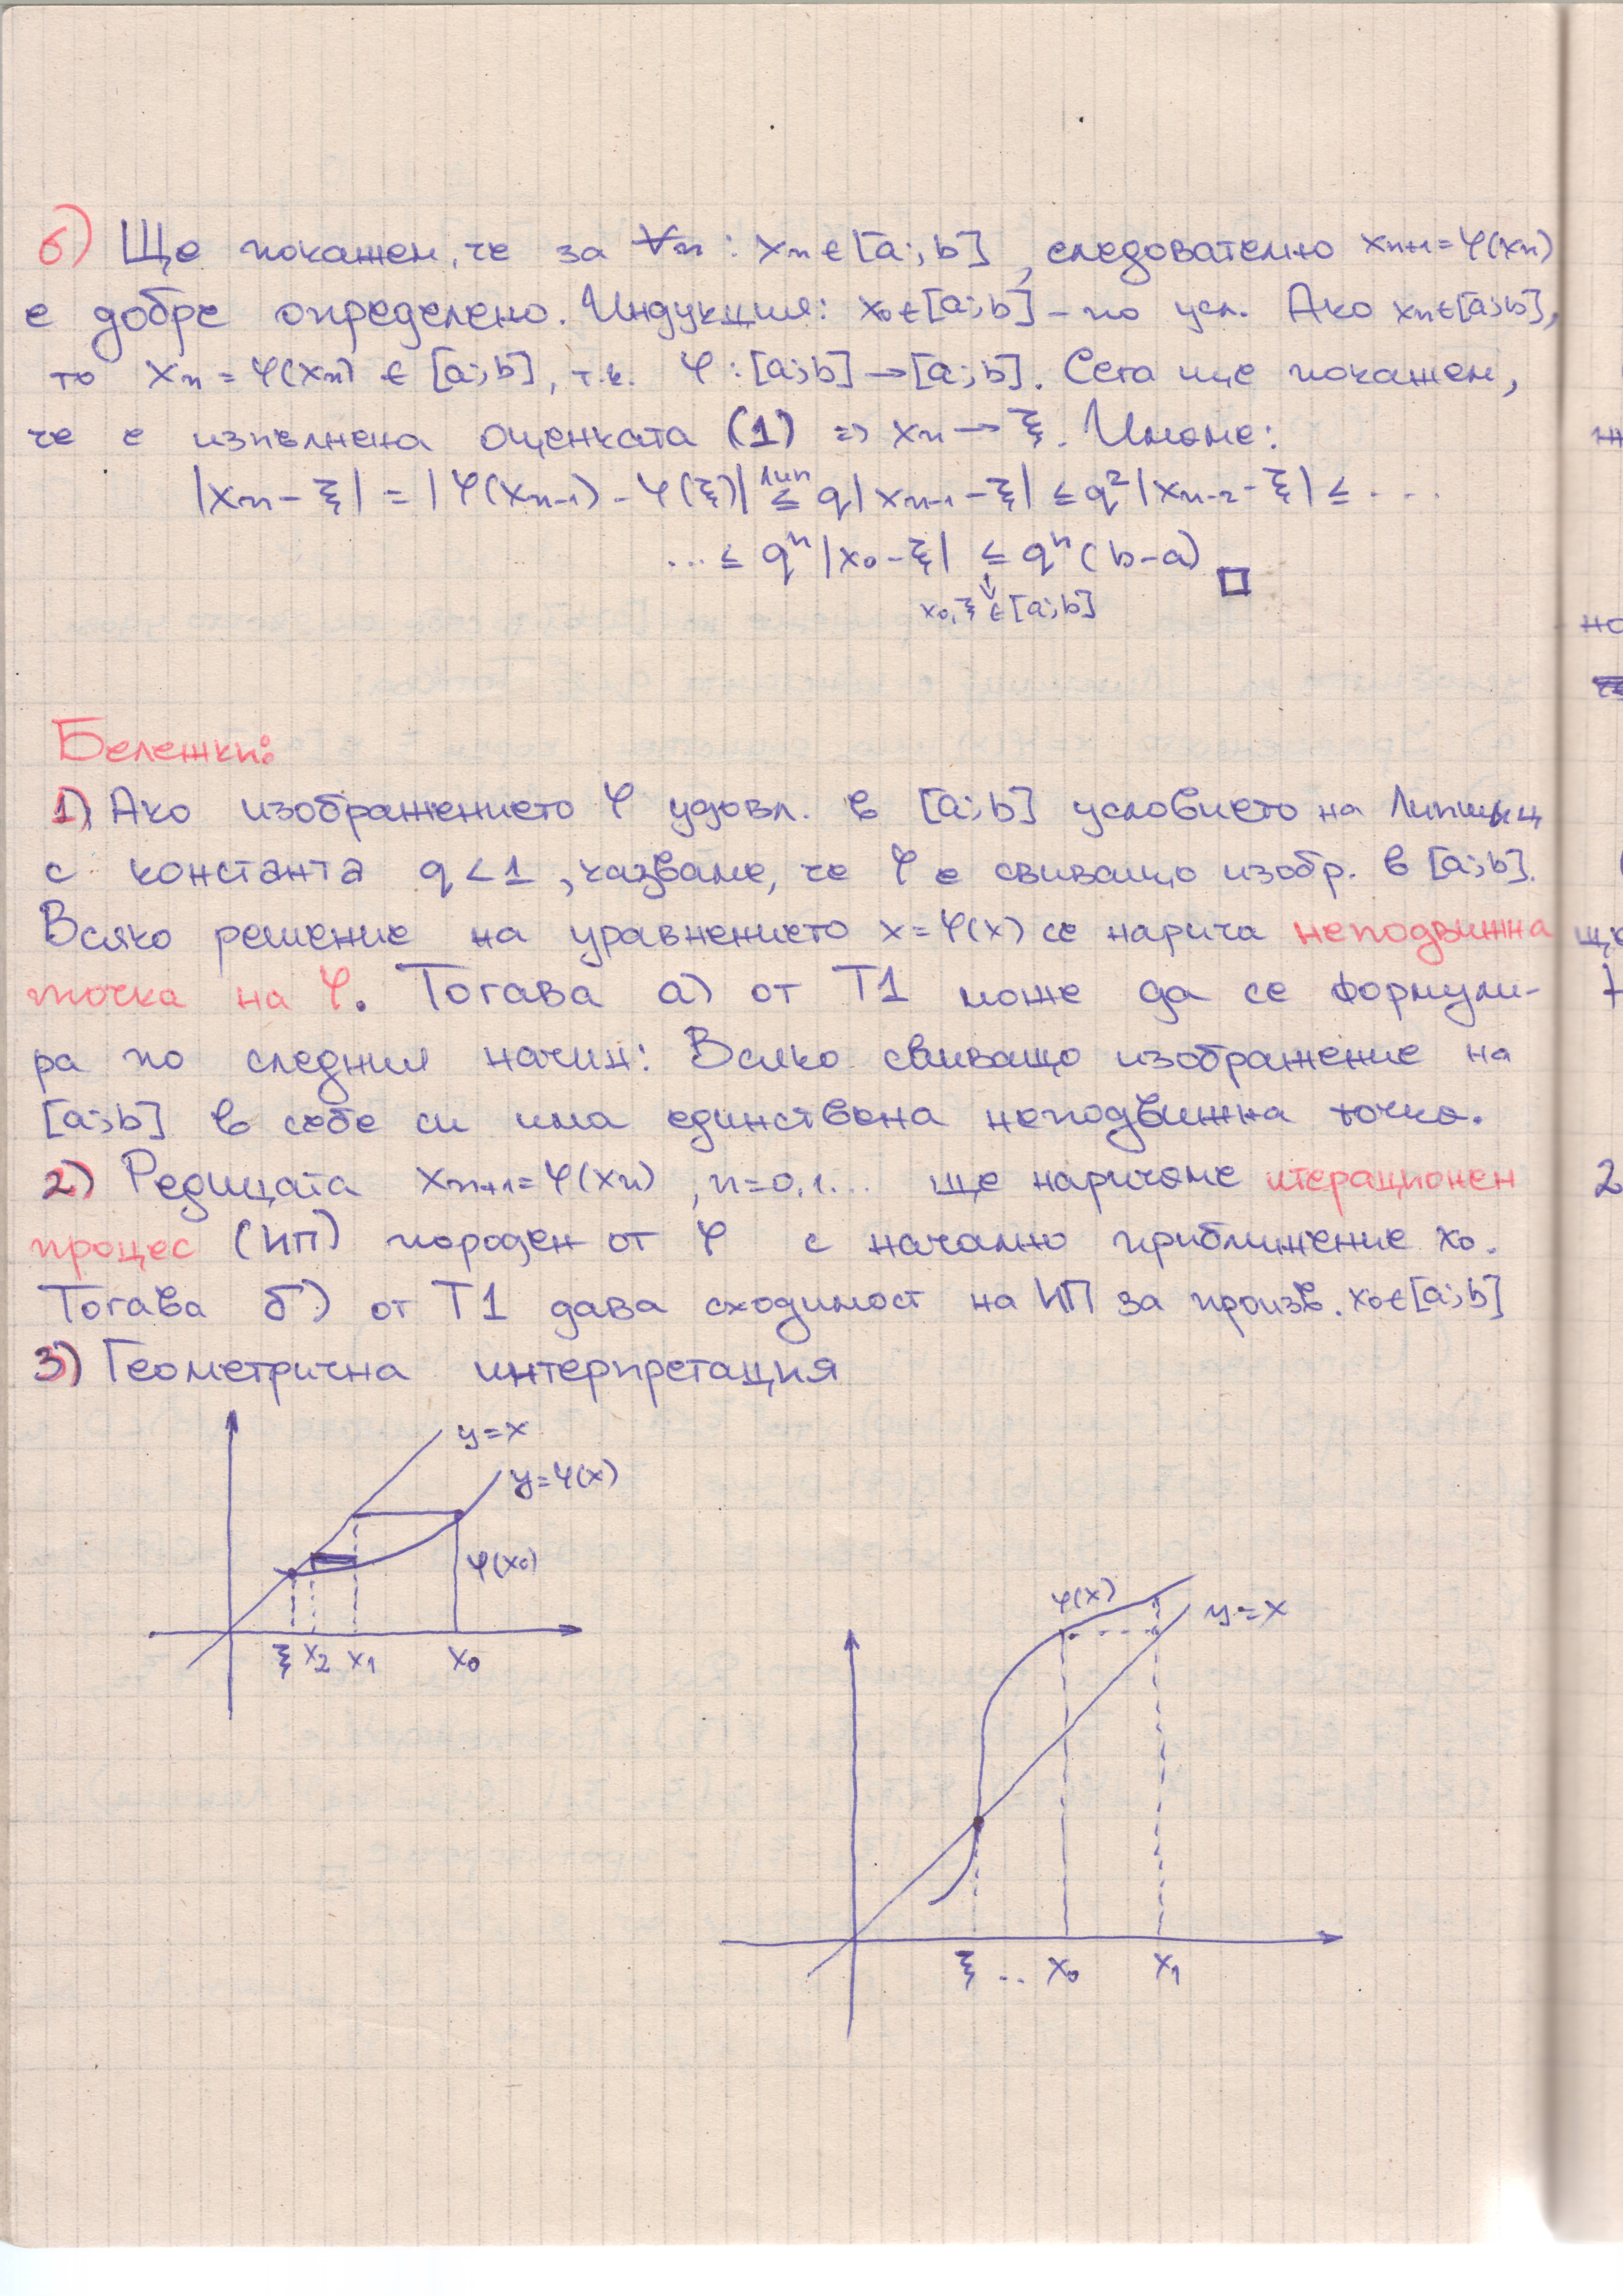 б) Ще покажем, че за ∀n : xn ∈ [a;b], следователно xn+1 = φ(xn)
е добре определено. Индукция: x0 ∈ [a;b] - по усл. Ако xn ∈ [a;b],
то xn = φ(xn) ∈ [a;b], т.к. φ : [a;b] → [a;b]. Сега ще покажем,
че е изпълнена оценката (1) => xn → ξ. Имаме:
|xn - ξ| = |φ(xn-1) - φ(ξ)| ≤ q|xn-1 - ξ| ≤ q²|xn-2 - ξ| ≤ ...
Лип
... ≤ qⁿ|x0 - ξ| ≤ qⁿ(b-a) □
x0, ξ ∈ [a;b]
Бележки:
1) Ако изображението φ удовл. в [a;b] условието на Липшиц
с константа q < 1, казваме, че φ е свиващо изобр. в [a;b].
Всяко решение на уравнението x = φ(x) се нарича неподвижна
точка на φ. Тогава а) от Т1 може да се формули-
ра по следния начин: Всяко свиващо изображение на
[a;b] в себе си има единствена неподвижна точка.
2) Редицата xn+1 = φ(xn), n=0,1... ще наричаме итерационен
процес (ИП) породен от φ с начално приближение x0.
Тогава б) от Т1 дава сходимост на ИП за произв. x0 ∈ [a;b]
3) Геометрична интерпретация
y=x
y=φ(x)
φ(x0)
ξ x2 x1 x0
φ(x)
y=x
ξ .. x0 x1